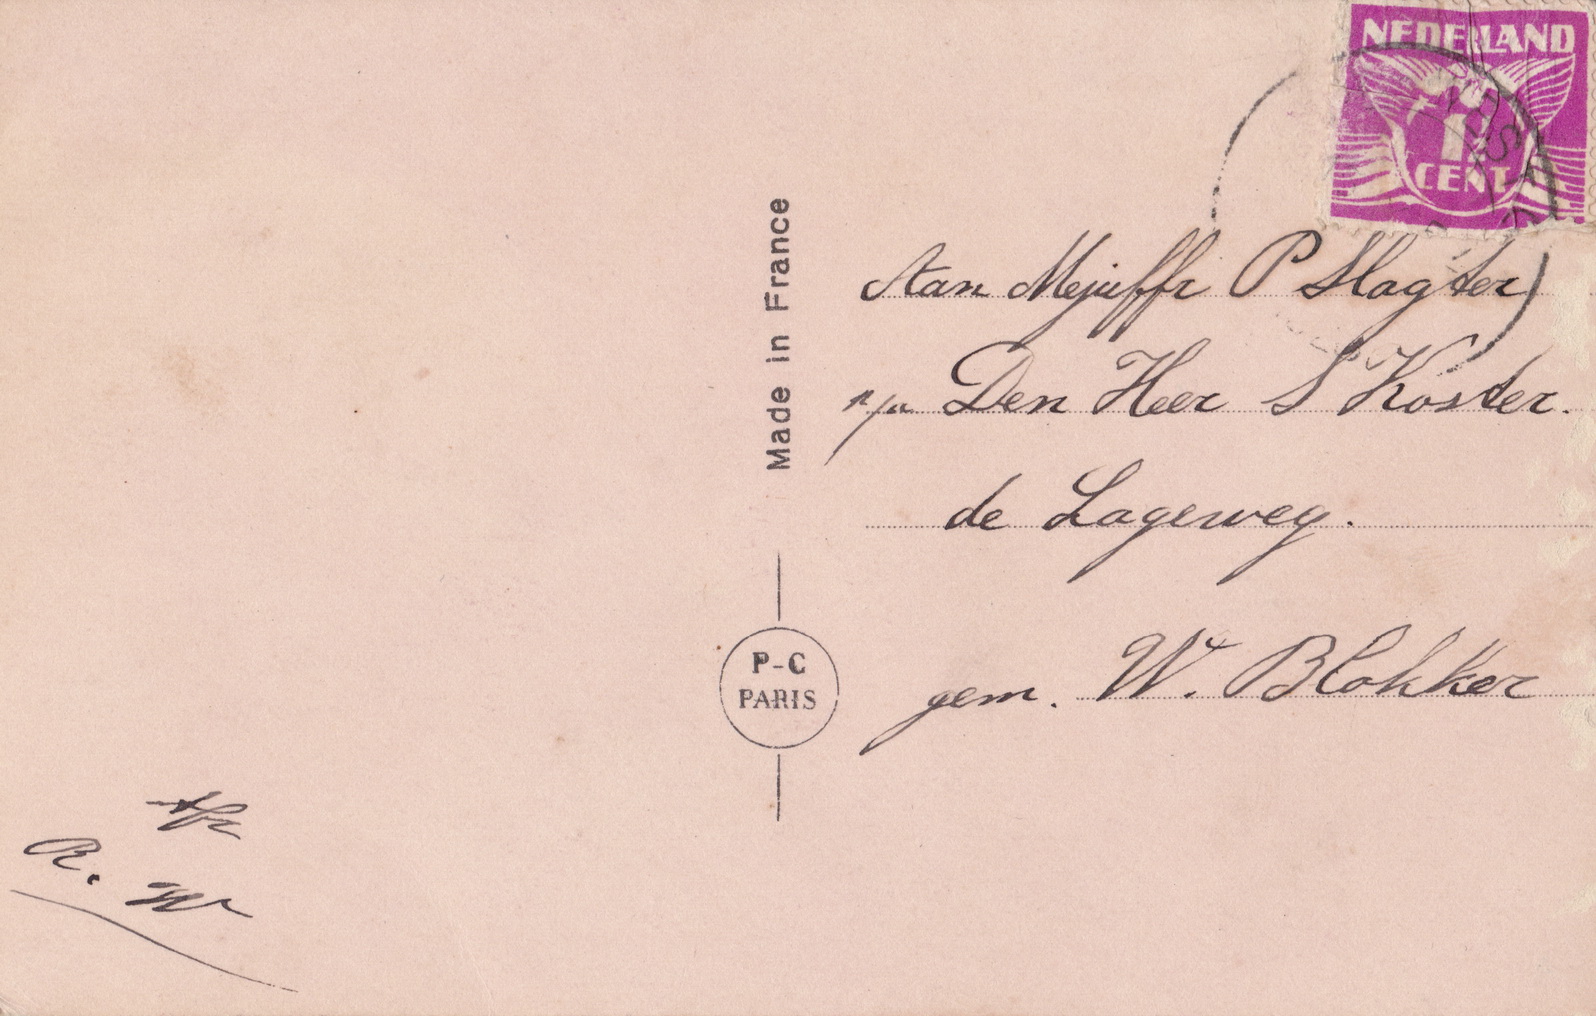 NEDERLAND
1½
CENT
Aan Mejuffr P Slagter
p/a Den Heer S Koster.
de Lageweg.
gem. W. Blokker
Made in France
P-C
PARIS
Afz
R. W